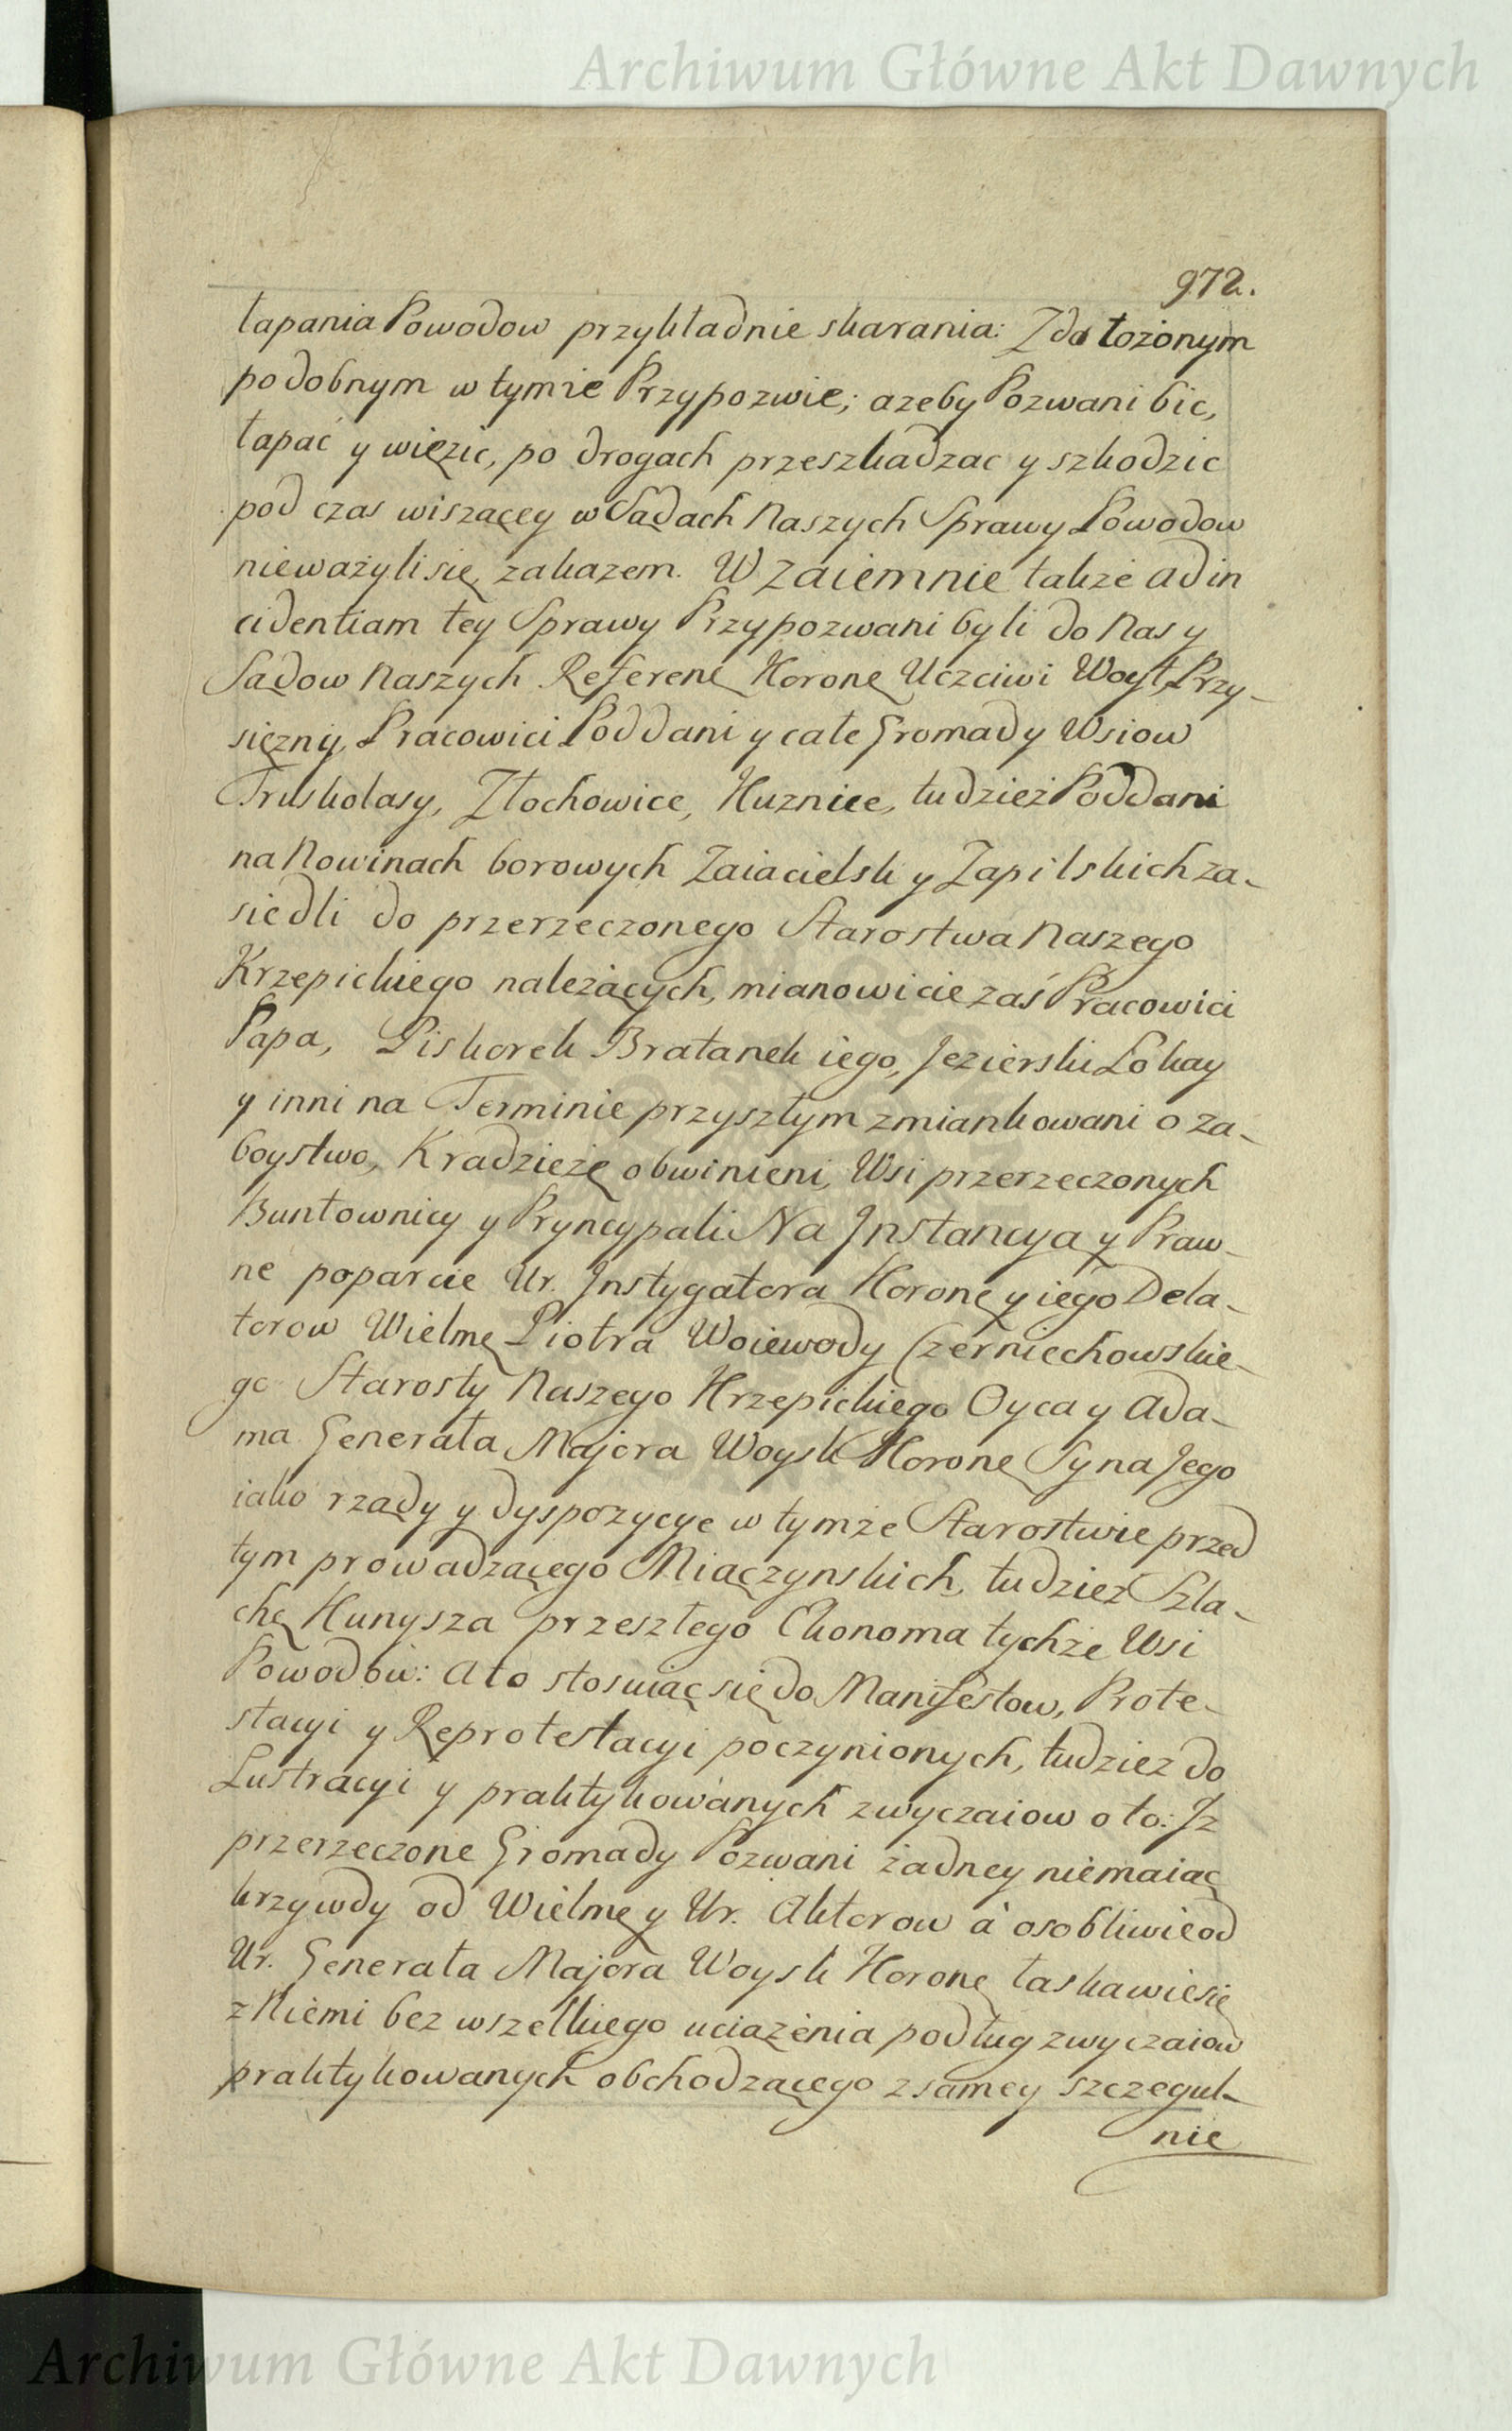 Archiwum Główne Akt Dawnych
972.
łapania Powodow przykładnie skarania: Z dołożonym
podobnym w tymie Przypozwie; azeby Pozwani bic,
łapać y więzic, po drogach przeszkadzac y szkodzic
pod czas wiszącey w Sądach Naszych Sprawy Powodow
nieważyli się zakazem. W Zaiemnie także ad in
cidentiam tey Sprawy Przypozwani byli do Nas y
Sądow Naszych Referenę Koronę Uczciwi Woyt, Przy-
siężny, Pracowici Poddani y całe Gromady Wsiow
Truskolasy, Złochowice, Kuznice, tudzież Poddani
na Nowinach borowych Zaiacielsk y Zapilskich za-
siedli do przerzeczonego Starostwa Naszego
Krzepickiego należących, mianowicie zaś Pracowici
Papa, Piskorek Bratanek iego, Jezierski Lokay
y inni na Terminie przyszłym zmiankowani o za-
boystwo, Kradzieżę obwinieni, Wsi przerzeczonych
Buntownicy y Pryncypali Na Jnstancyą y Praw-
ne poparcie Ur. Jnstygatora Koronę y iego Dela-
torow Wielmę Piotra Woiewody Czerniechowskie-
go Starosty Naszego Krzepickiego Oyca y Ada-
ma Generała Majora Woysk Koronę Syna Jego
iako rządy y dyspozycye w tymże Starostwie przed
tym prowadzącego Miączynskich, tudzież Szla-
chę Kunysza przeszłego Ekonoma tychże Wsi
Powodów: A to stosuiąc się do Manifestow, Prote-
stacyi y Reprotestacyi poczynionych, tudzież do
Lustracyi y praktykowanych zwyczaiow o to: Jz
przerzeczone Gromady Pozwani żadney niemaiąc
krzywdy od Wielmę y Ur. Aktorow à osobliwie od
Ur. Generała Majora Woysk Koronę łaskawie się
z Niemi bez wszelkiego uciążenia podług zwyczaiow
praktykowanych obchodzącego z samey szczegul-
nie
Archiwum Główne Akt Dawnych